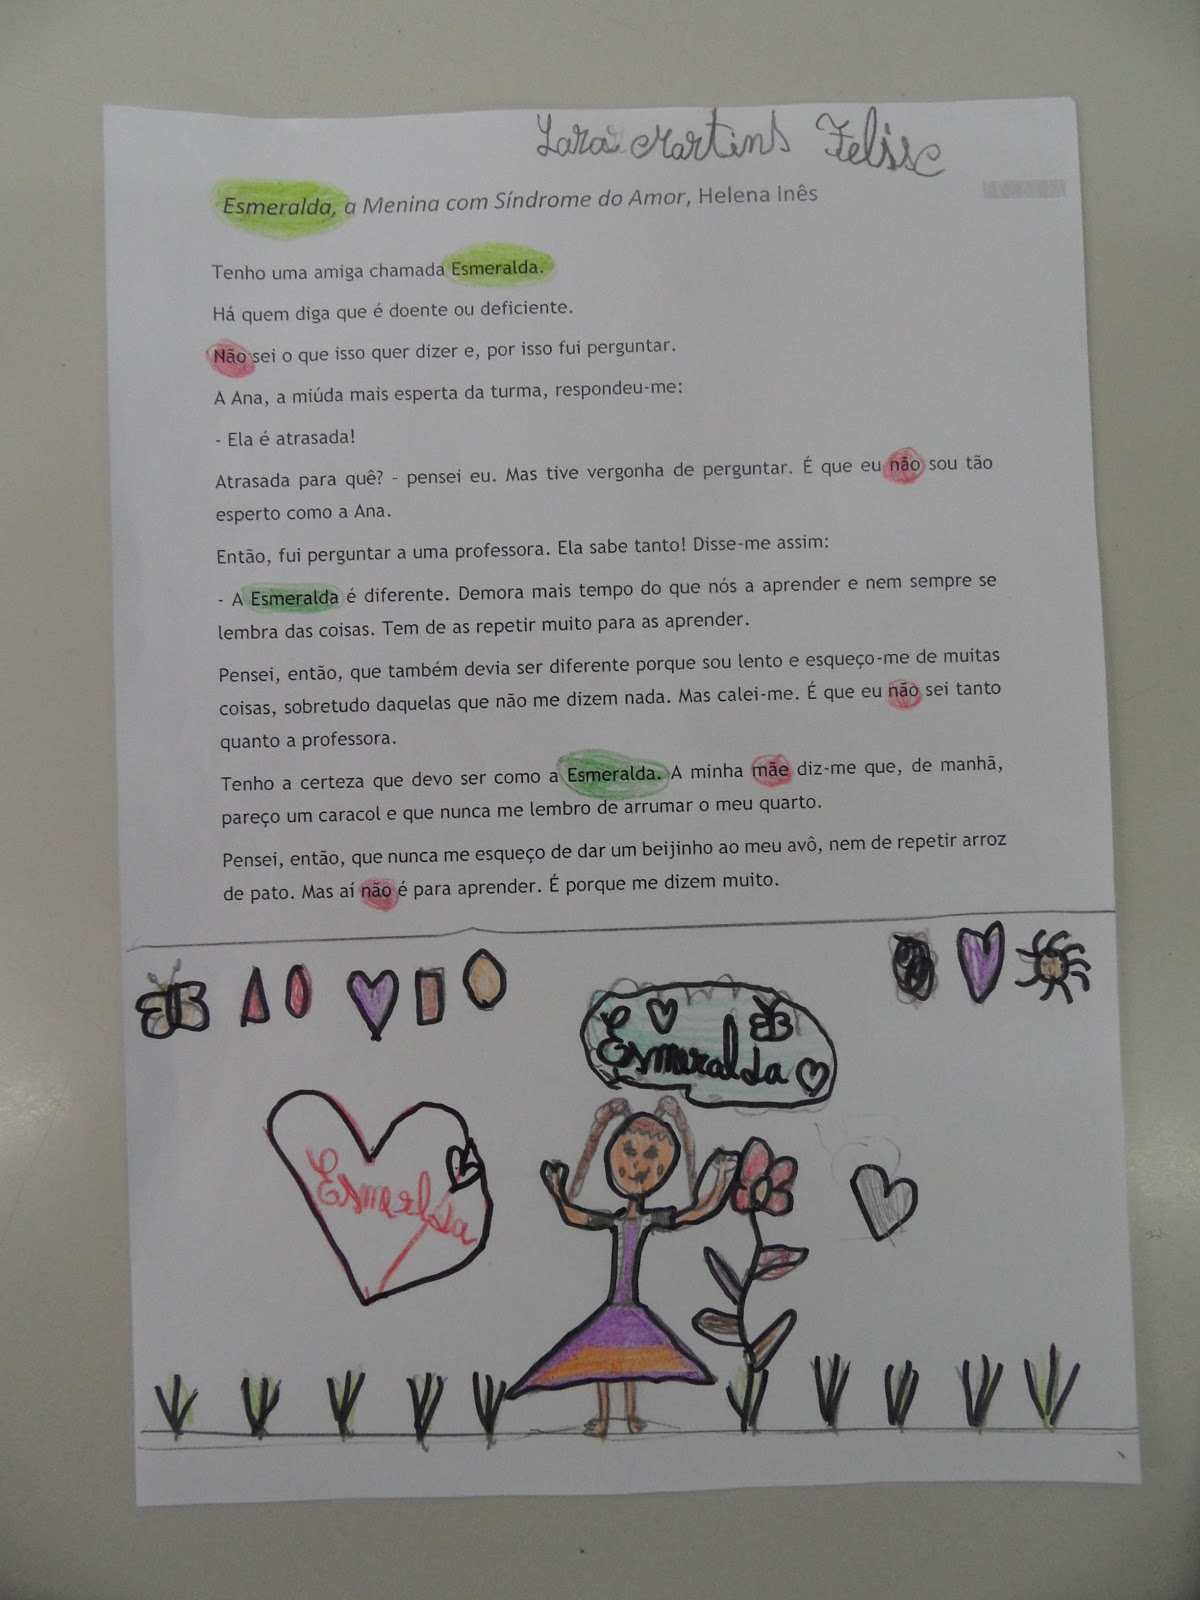 Lara Martins Felisc
Esmeralda, a Menina com Síndrome do Amor, Helena Inês
Tenho uma amiga chamada Esmeralda.
Há quem diga que é doente ou deficiente.
Não sei o que isso quer dizer e, por isso fui perguntar.
A Ana, a miúda mais esperta da turma, respondeu-me:
- Ela é atrasada!
Atrasada para quê? - pensei eu. Mas tive vergonha de perguntar. É que eu não sou tão
esperto como a Ana.
Então, fui perguntar a uma professora. Ela sabe tanto! Disse-me assim:
- A Esmeralda é diferente. Demora mais tempo do que nós a aprender e nem sempre se
lembra das coisas. Tem de as repetir muito para as aprender.
Pensei, então, que também devia ser diferente porque sou lento e esqueço-me de muitas
coisas, sobretudo daquelas que não me dizem nada. Mas calei-me. É que eu não sei tanto
quanto a professora.
Tenho a certeza que devo ser como a Esmeralda. A minha mãe diz-me que, de manhã,
pareço um caracol e que nunca me lembro de arrumar o meu quarto.
Pensei, então, que nunca me esqueço de dar um beijinho ao meu avô, nem de repetir arroz
de pato. Mas aí não é para aprender. É porque me dizem muito.
Esmeralda
Esmerlda